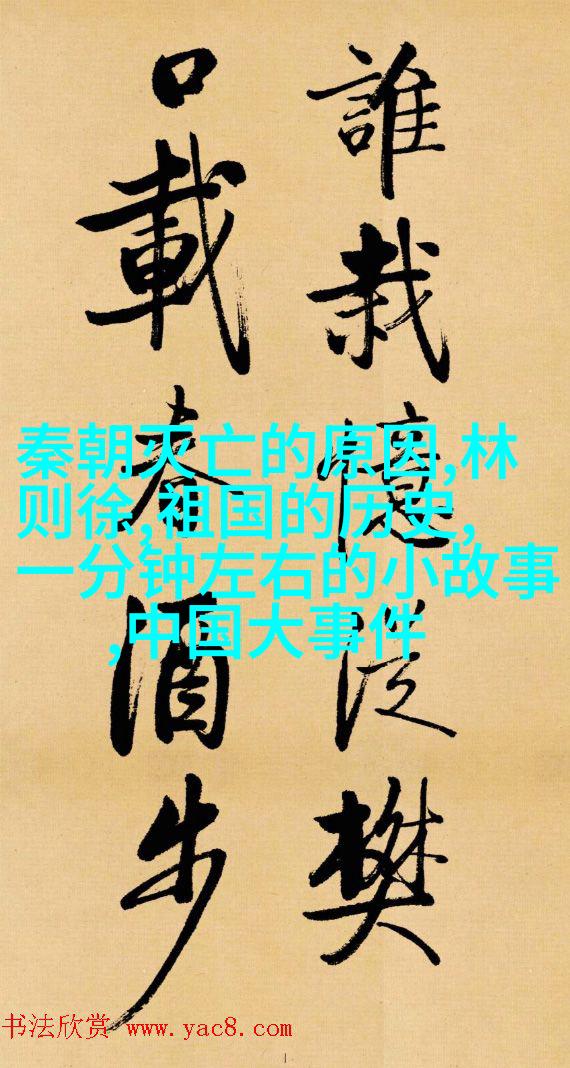 誰栽憶從樊
口載春酒步
秦朝灭亡的原因,林
则徐,祖国的历史,
一分钟左右的小故事
,中国大事件
书法欣赏 www.yac8.com